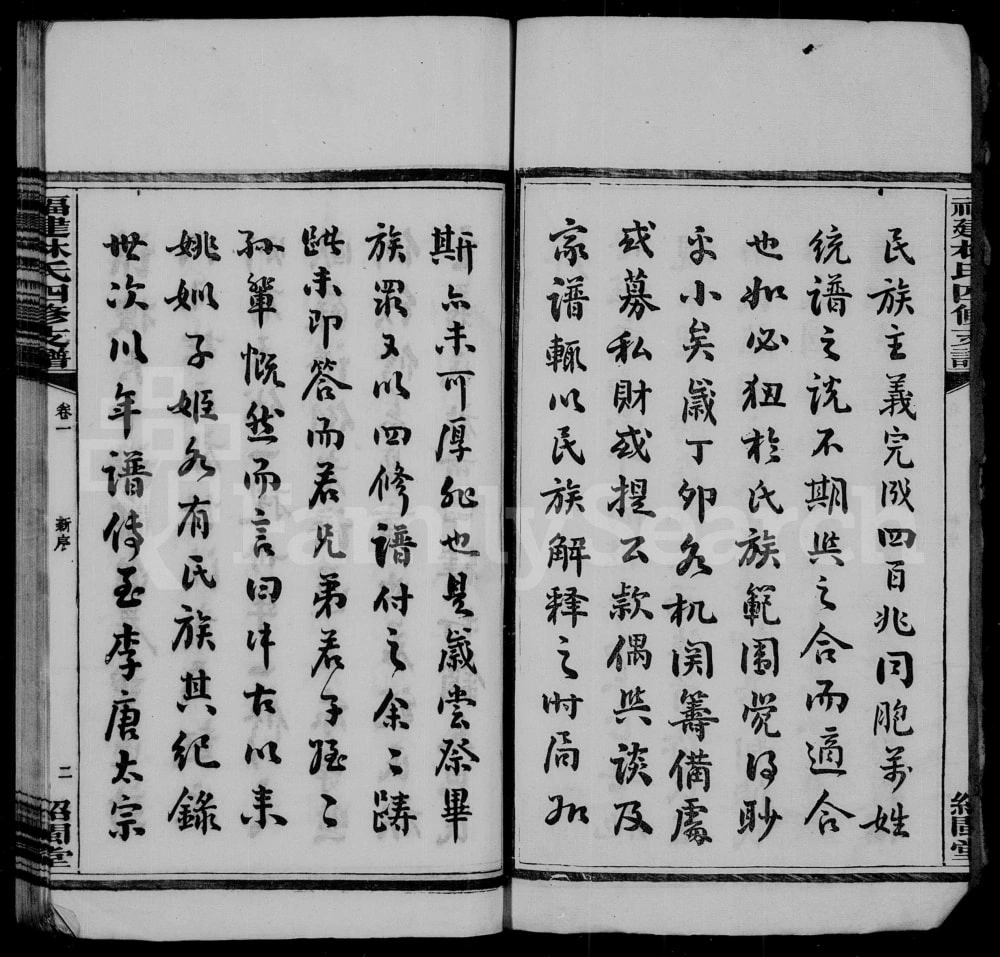 福建林氏四修支譜
紹聞堂
民族主義完成四百兆同胞萬姓
統譜之說不期與之合而適合
也如必狃於氏族範圍覺得眇
乎小矣歲丁卯各机関籌備處
或募私財或提公款偶與談及
家譜輒以民族解釋之时局如
斯亦未可厚非也是歲嘗祭畢
族眾又以四修譜付之余余躊
躇未即答而若兄弟若子姪
孫輩慨然而言曰中古以来
姚姒子姬各有民族其紀錄
世次以年譜傳至李唐太宗
福建林氏四修支譜
卷一
新序
二
紹聞堂
FamilySearch